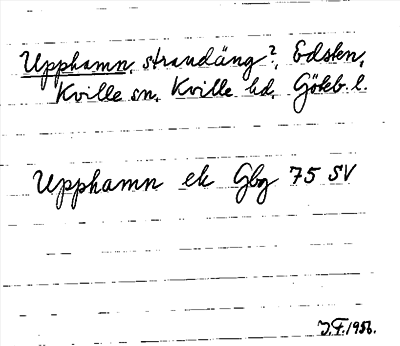 Upphamn, strandäng?, Edsten,
Kville sn, Kville hd, Göteb. l.
Upphamn ek Gbg 75 SV
J.F. 1956.